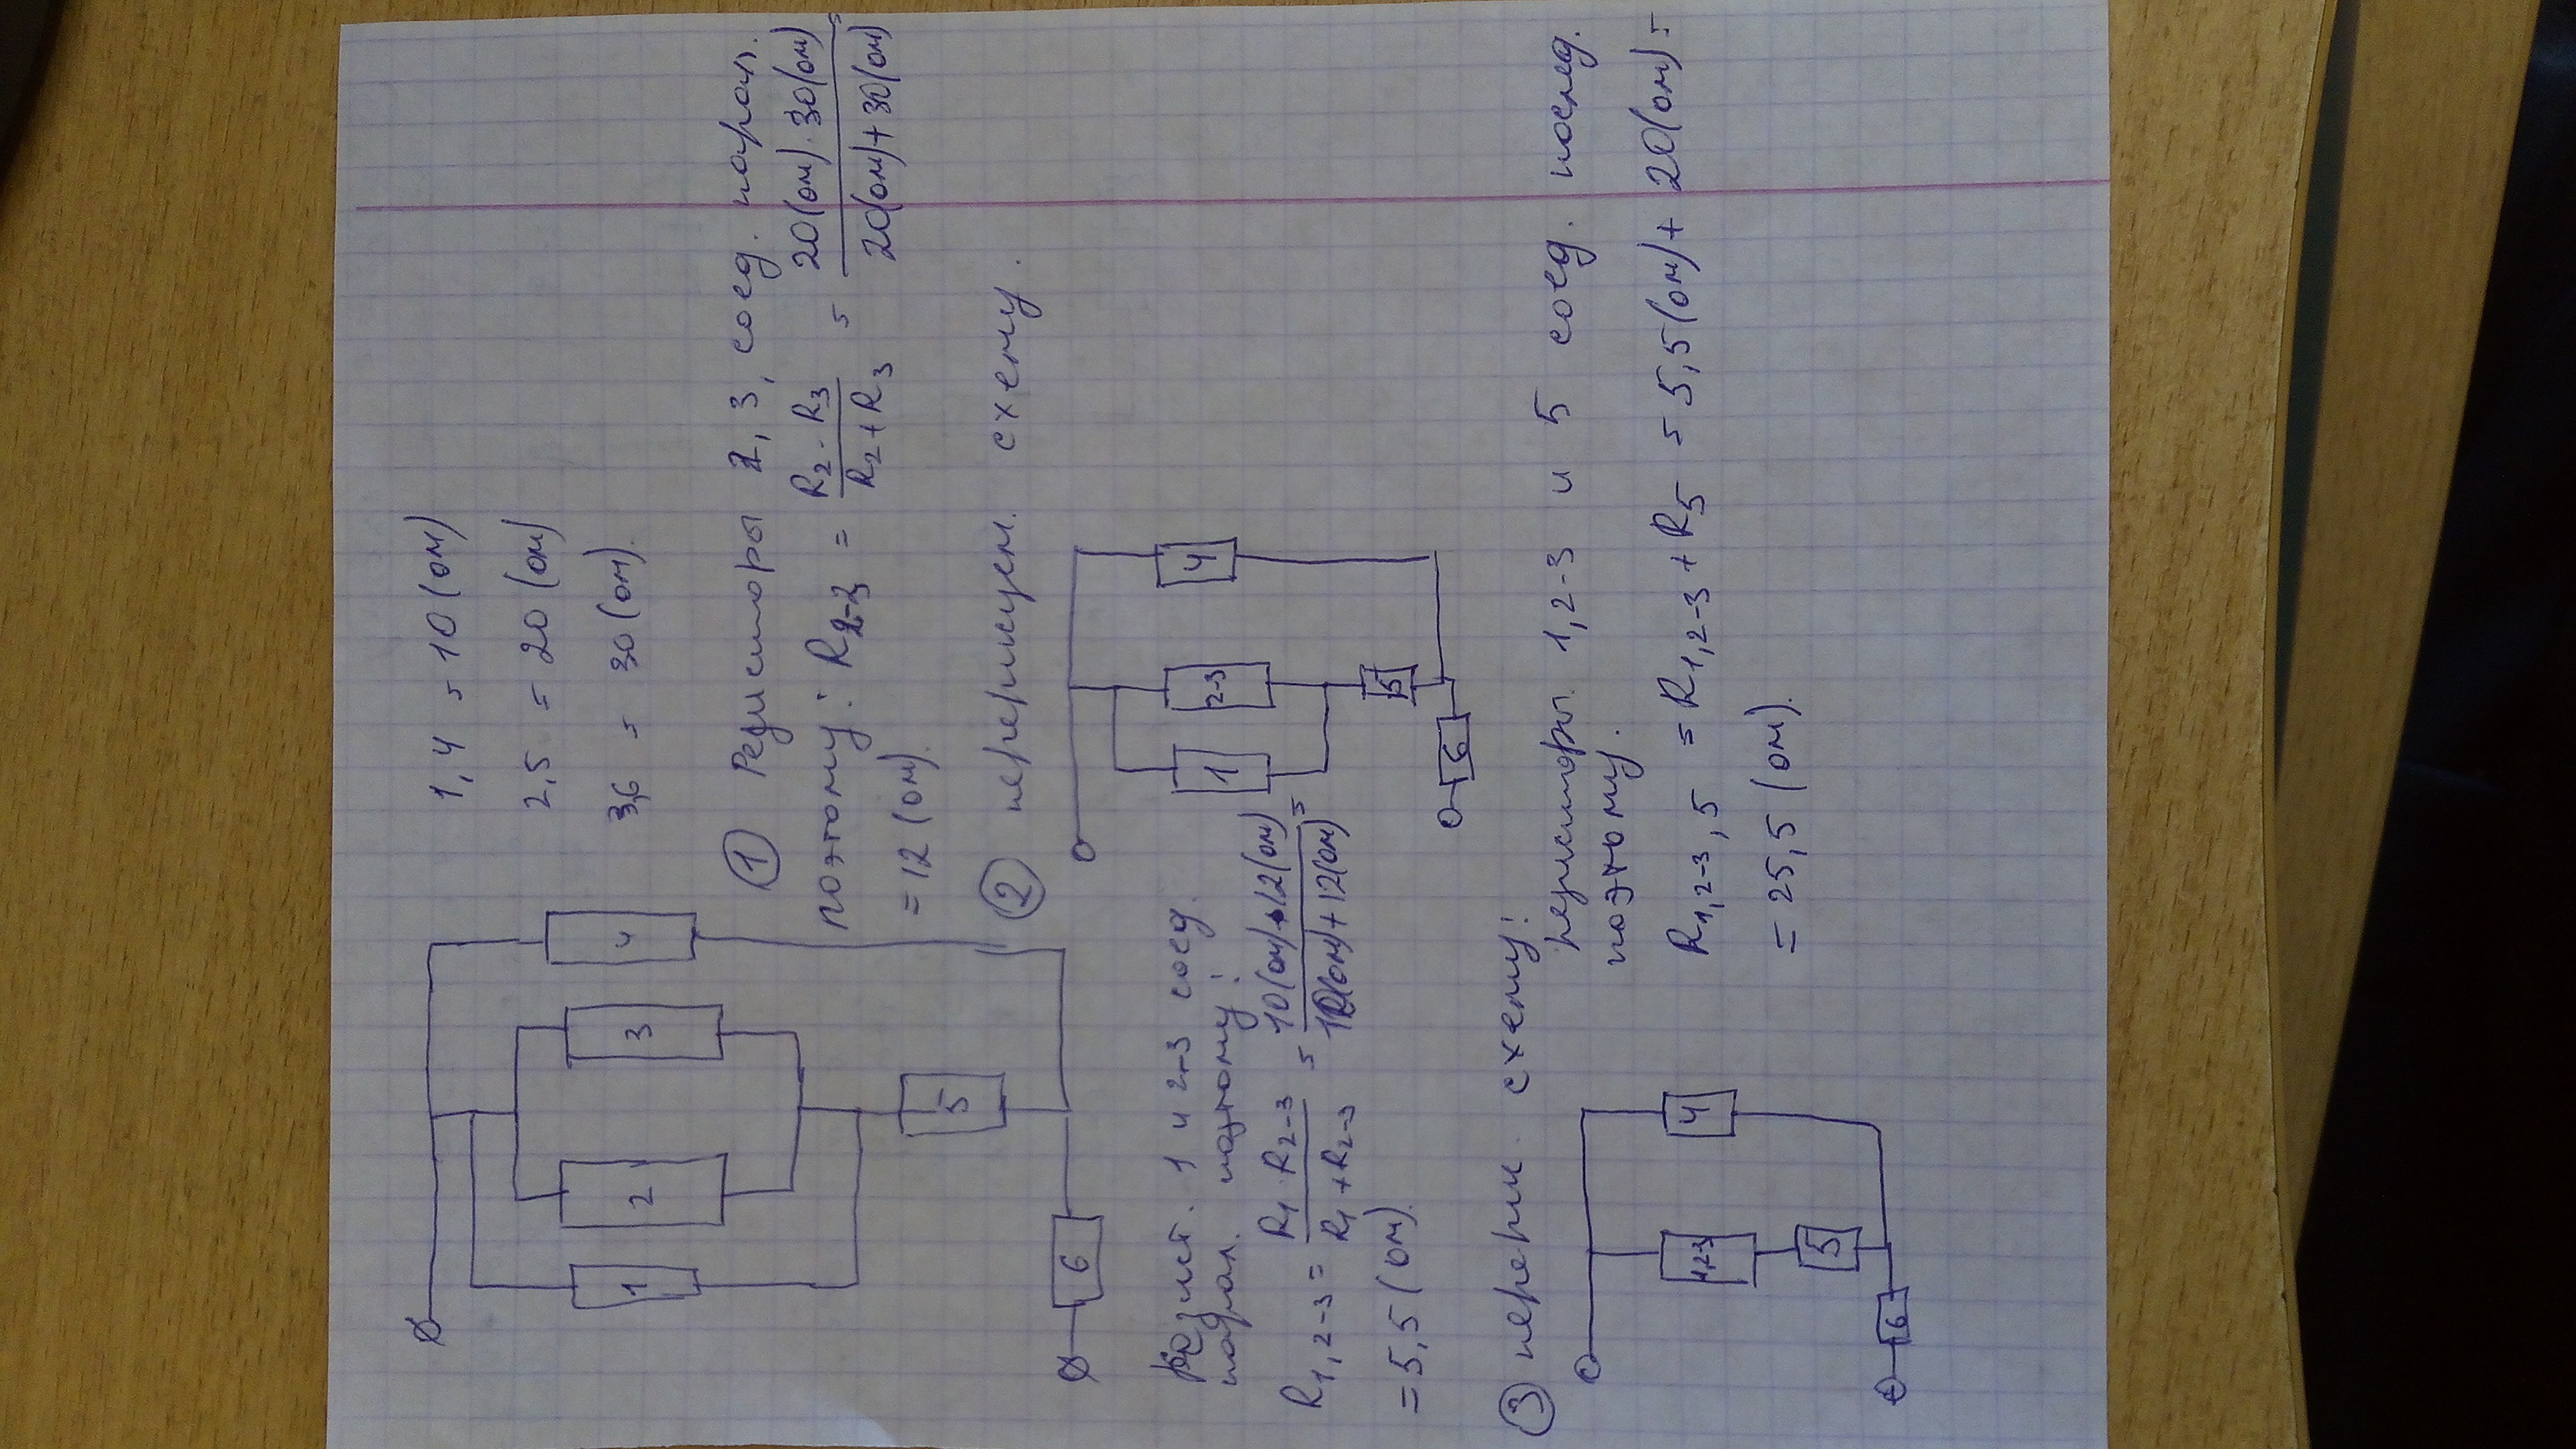 1,4 = 10(ом)
2,5 = 20(ом)
3,6 = 30(ом).
1
2
3
4
5
6
① Резисторы 2,3, соед. парал.
поэтому: R2-3 = R2·R3 / R2+R3 = 20(ом)·30(ом) / 20(ом)+30(ом) =
= 12(ом).
② перерисуем. схему.
1
2-3
4
5
6
Резист. 1 и 2-3 соед.
парал. поэтому:
R1,2-3 = R1·R2-3 / R1+R2-3 = 10(ом)·12(ом) / 10(ом)+12(ом) =
= 5,5(ом).
③ перери. схему:
1,2-3
4
5
6
резисторы. 1,2-3 и 5 соед. послед.
поэтому.
R1,2-3,5 = R1,2-3+R5 = 5,5(ом)+20(ом)=
= 25,5(ом).